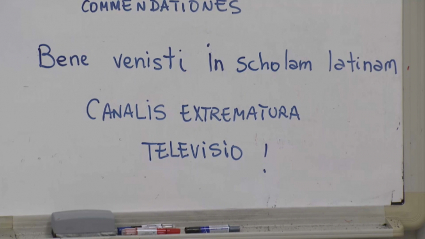 COMMENDATIONES
Bene venisti in scholam latinam
CANALIS EXTREMATURA
TELEVISIO !